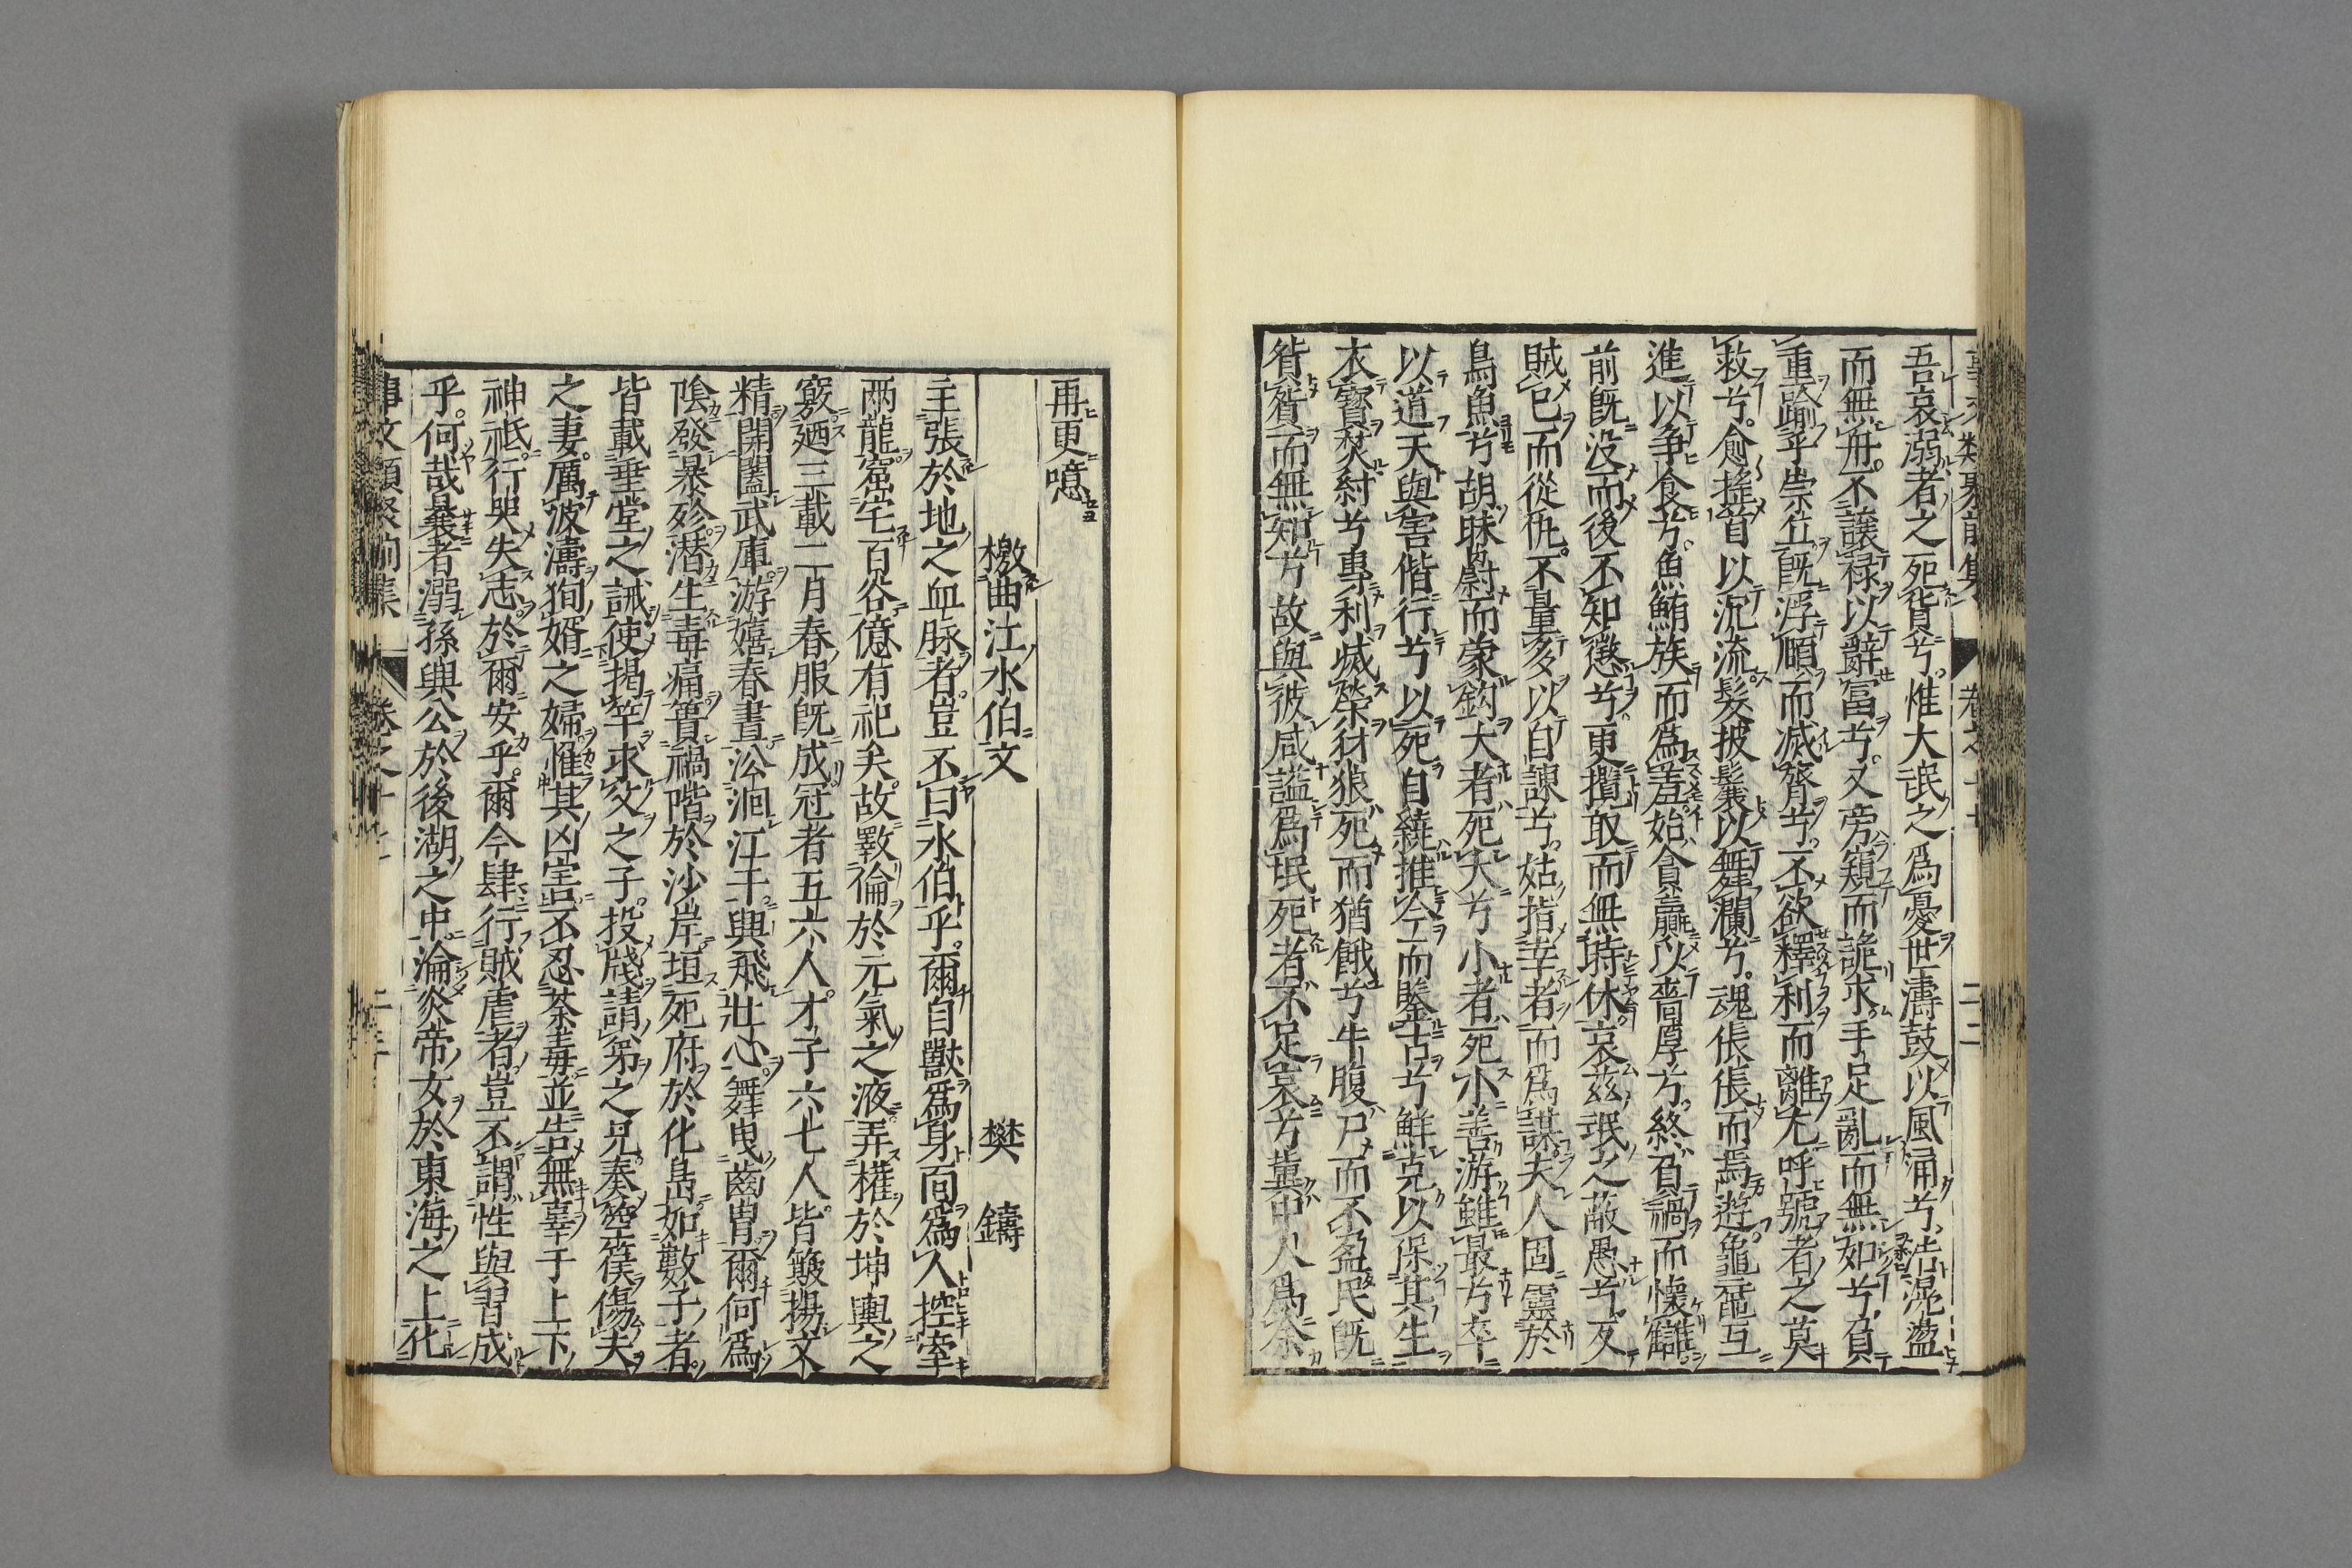 吾哀溺者之死貨兮。惟大氓之爲憂世濤鼓以風涌兮。浩滉盪
而無舟。不讓祿以辭富兮。又旁窺而詭求手足亂而無如兮。負
重踰乎崇丘既浮頤而滅膂兮。不欲釋利而離尤呼號者之莫
救兮。愈搖首以沉流髮披鬤以舞瀾兮。魂倀倀而焉遊龜黿互
進以争食兮。魚鮪族而爲羞始貪贏以嗇厚兮。終負禍而懷讎
前既没而後不知懲兮。更攬取而無時休哀兹氓之蔽愚兮。反
賊已而從仇。不量多以自諫兮。姑指幸者而爲謀夫人固靈於
鳥魚兮胡昧罻而蒙鈎大者死大兮小者死小善游雖最兮卒
以道夭與害偕行兮以死自繞推今而鑒古兮鮮克以保其生
衣寶焚紂兮專利滅榮豺狼死而猶餓兮牛腹尸而不盈民既
貿貿而無知兮故與彼咸諡爲氓死者不足哀兮冀中人爲余
再更噫
檄曲江水伯文　樊　鑄
主張於地之血脉者。豈不曰水伯乎。爾自獸爲身而爲人控牽
兩龍。窟宅百谷億有祀矣。故斁倫於元氣之液弄權於坤輿之
竅廼三載二月春服既成冠者五六人。才子六七人。皆簸揚文
精開闔武庫游嬉春晝沿洄江干。與飛壯心舞曳齒胄爾何爲
陰發暴殄潜生毒痛簣禍階於沙岸垣死府於化島如數子者。
皆載垂堂之誡使揭竿求父之子。投牋請弟之兄。奏箜篌傷夫
之妻。厲波濤狥婿之婦罹其凶害不忍荼毒並告無辜于上下
神祗。行哭失志。於爾安乎。爾今肆行賊虐者豈不謂性與習成
乎。何哉曩者溺孫與公於後湖之中。淪炎帝女於東海之上化